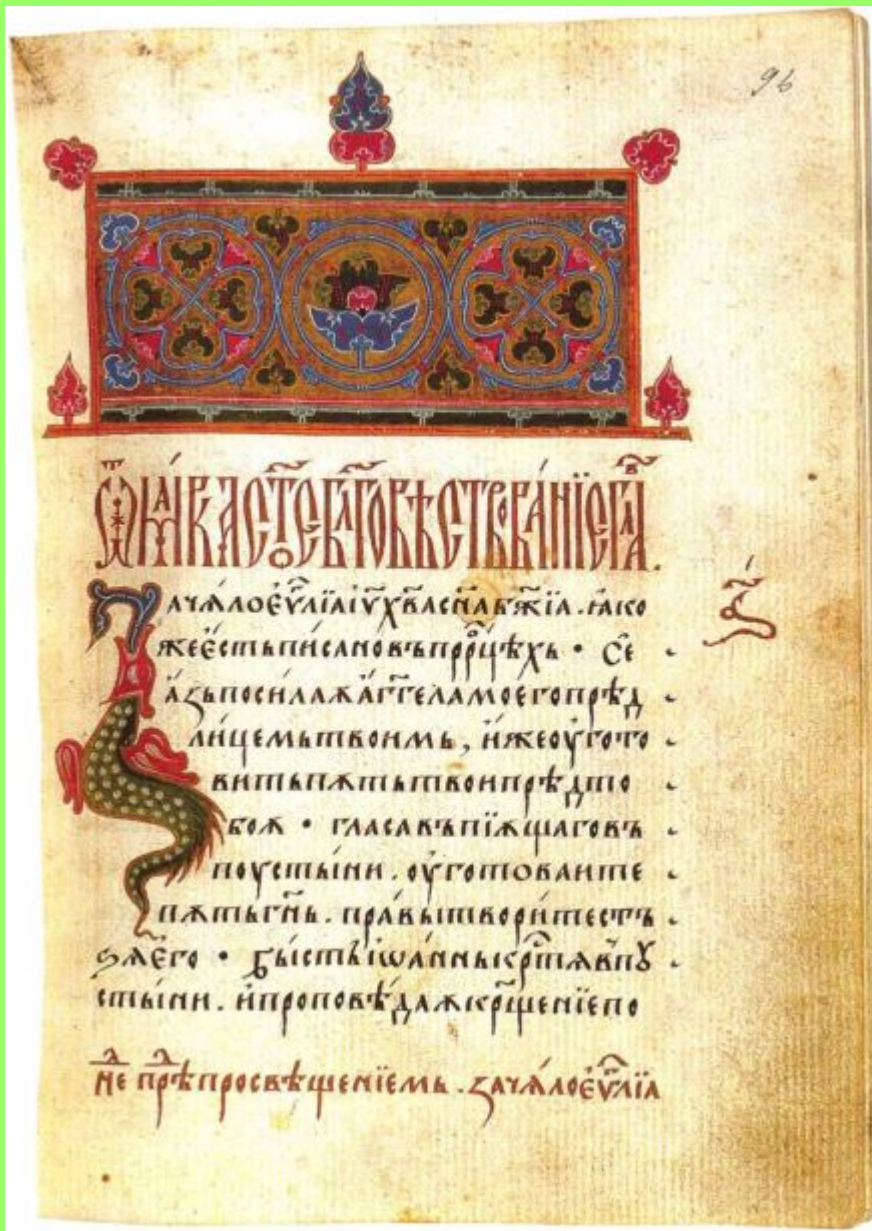 96
Ѿ мáрка ст҃о є бл҃говѣствованїе гл҃а в҃.
Зачѧло єѵ҃лїа іѵ҃ х҃ва сн҃а бж҃їа. ꙗко
жеє́стьписановъпрⷪ҇рцѣхь · Се
а́зьпосилаѫа҆́гг҃еламоегопрѣд
лицемьтвоимь, и҆жеоу҆гото
витьпѫтьтвоипрѣдто
боѫ · гласавъпїѫщаговъ
поустыни . оу҆готоваите
пѫтьгн҃ь . пра́вытвори́тестъ
зѫє҆го · Бы́стьїѡа́ннькр҃тѧвъпꙋ
стыни . и҆проповѣдаѫкр҃щенїепо
нⷣе прⷣѣ просвѣщенїемь . зачѧлоєѵ҃лїа